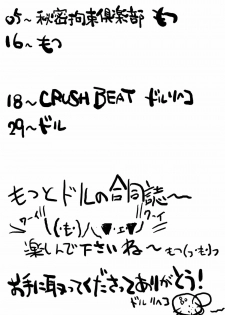 05〜秘密拘束倶楽部 もつ
16〜もつ
18〜CRUSH BEAT ドルリヘコ
29〜ドル
もつとドルの合同誌〜
ワーイ \(・ω・)八(▼・ェ・▼)/ ワーイ
楽しんで下さいね〜 もつ(っ・ω・)っ
お手に取ってくださってありがとう!
ドルリヘコ